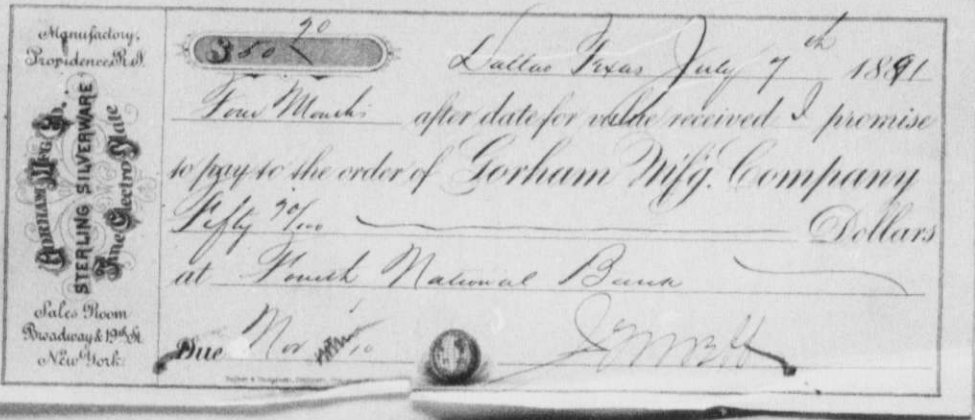 Manufactory:
Providence R.I.
GORHAM MFG CO.
STERLING SILVERWARE
Fine Electro Plate
Sales Room
Broadway & 19th St.
New York:
$ 50 90/
Dallas Texas July 7th 1891
Four Months after date for value received I promise
to pay to the order of Gorham Mf'g. Company
Fifty 90/100 Dollars
at Fourth National Bank
Due Nov 10